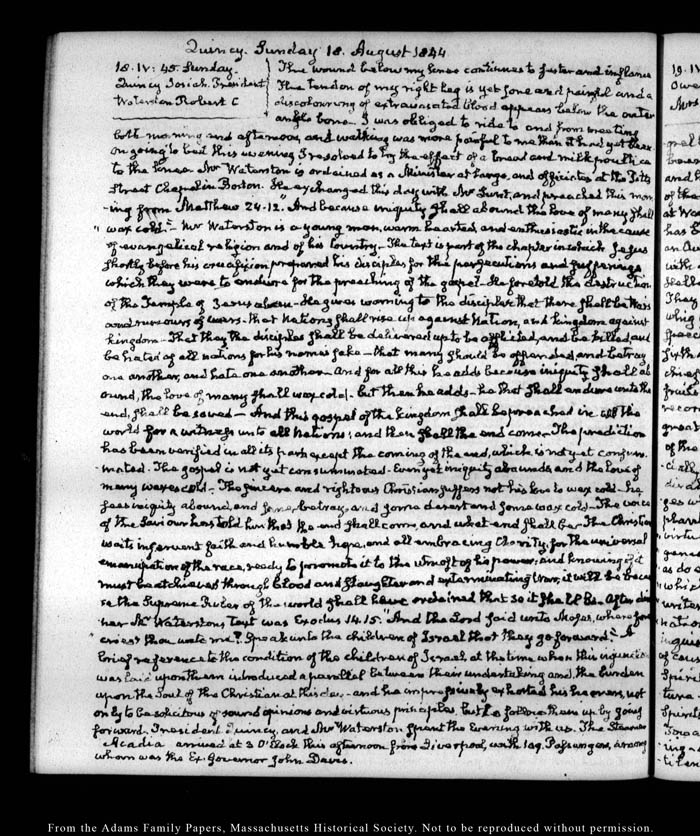 Quincy. Sunday 18. August 1844
18. IV: 45. Sunday.
Quincy Josiah. President
Waterston Robert C
The wound below my knee continues to fester and inflame
The tendon of my right leg is yet sore and painful and a
discolouring of extravasated blood appears below the outer
ankle bone. I was obliged to ride to and from meeting
both morning and afternoon, and walking was more painful to me than it had yet been.
On going to bed this evening I resolved to try the effect of a bread and milk poultice
to the knee. Mr Waterston is ordained as a Minister at large, and officiates at the Pitts
Street Chapel in Boston. He exchanged this day with Mr Lunt, and preached this morn
-ing from Matthew 24. 12. "And because iniquity shall abound the love of many shall
"wax cold." Mr Waterston is a young man, warm hearted, and enthusiastic in the cause
of evangelical religion and of his Country. The text is part of the chapter in which Jesus
shortly before his crucifixion prepared his disciples for the persecutions and sufferings
which they were to endure for the preaching of the gospel. He foretold the destruction
of the Temple of Jerusalem. He gives warning to the disciples that there shall be wars
and rumours of wars. that Nation shall rise up against Nation, and kingdom against
kingdom. That they the disciples shall be delivered up to be afflicted, and be killed, and
be hated of all nations for his name's sake. that many should be offended, and betray
one another, and hate one another. and for all this he adds because iniquity shall ab
ound, the love of many shall wax cold. but then he adds. he that shall endure unto the
end, shall be saved. And this gospel of the kingdom shall be preached in all the
world for a witness unto all Nations; and then shall the end come. The prediction
has been verified in all its parts except the coming of the end, which is not yet consum
-mated. The gospel is not yet consummated. Even yet iniquity abounds and the love of
many waxes cold. The sincere and righteous Christian suffers not his love to wax cold. he
sees iniquity abound, and some betray, and some desert and some wax cold. The voice
of the Saviour has told him that the end shall come, and what end shall be. The Christian
waits in fervent faith and humble hope, and all embracing Charity, for the universal
emancipation of the race, ready to promote it to the utmost of his power; and knowing if it
must be atchieved through blood and slaughter and exterminating War, it will be becau
se the Supreme Ruler of the world shall have ordained that so it shall be. After din
ner Mr Waterston's Text was Exodus 14. 15. "And the Lord said unto Moses, wherefore
"criest thou unto me? Speak unto the children of Israel that they go forward." A
brief reference to the condition of the children of Israel, at the time when this injunction
was laid upon them introduced a parallel between their undertaking and the burden
upon the Soul of the Christian at this day. and he impressively exhorted his hearers, not
only to be solicitous of sound opinions and virtuous principles, but to follow them up by going
forward. President Quincy, and Mr Waterston spent the Evening with us. The Steamer
Acadia arrived at 3 O'Clock this afternoon from Liverpool, with 109. Passengers, among
whom was the Ex-Governor John Davis.
From the Adams Family Papers, Massachusetts Historical Society. Not to be reproduced without permission.